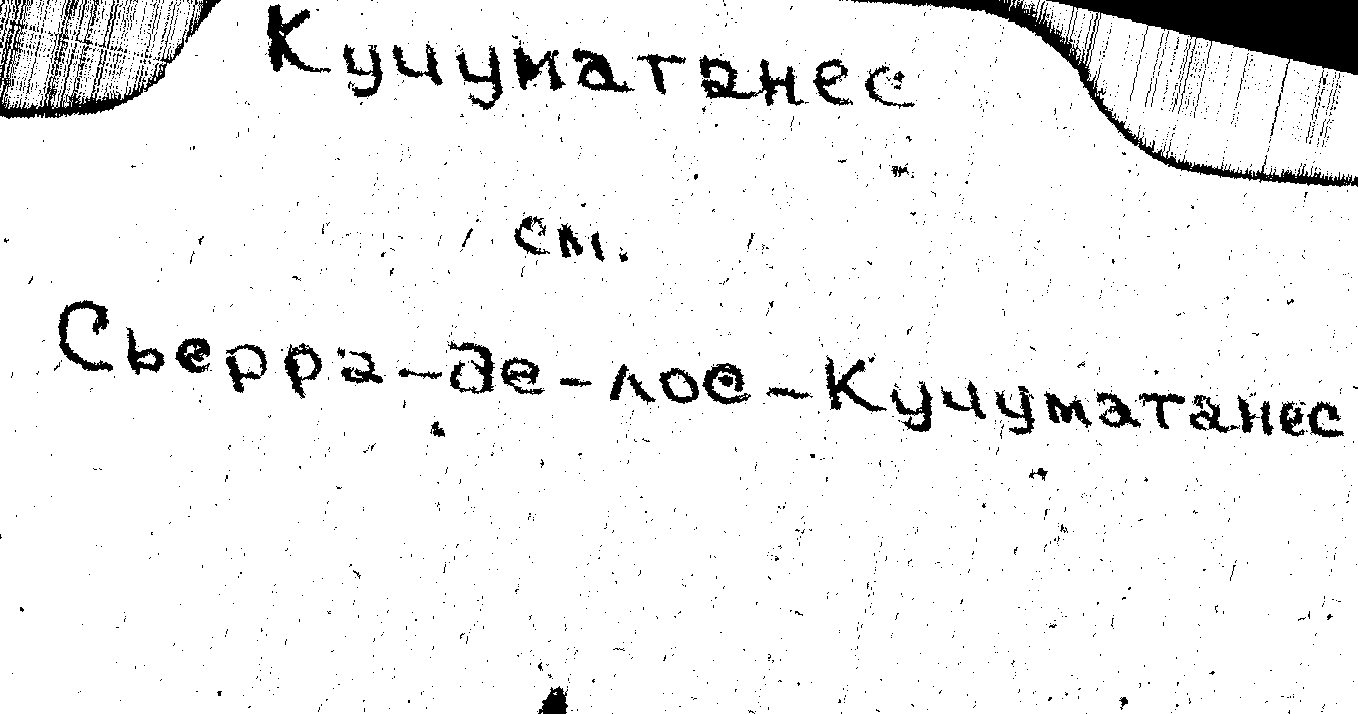 Кучуматанес
см.
Сьерра-де-лос-Кучуматанес